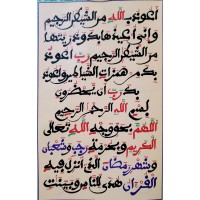 أعوذ بالله من الشيطن الرجيم
وإني أعيذها بك وذريتها
من الشيطن الرجيم رب أعوذ
بك من همزات الشياطين وأعوذ
بك رب أن يحضرون
بسم الله الرحمن الرحيم
اللهم بحق وجه الله تعالى
الكريم وبحرمة رجب وشعبان
وشهر رمضان الذي أنزل فيه
القرءان هدى للناس وبينت